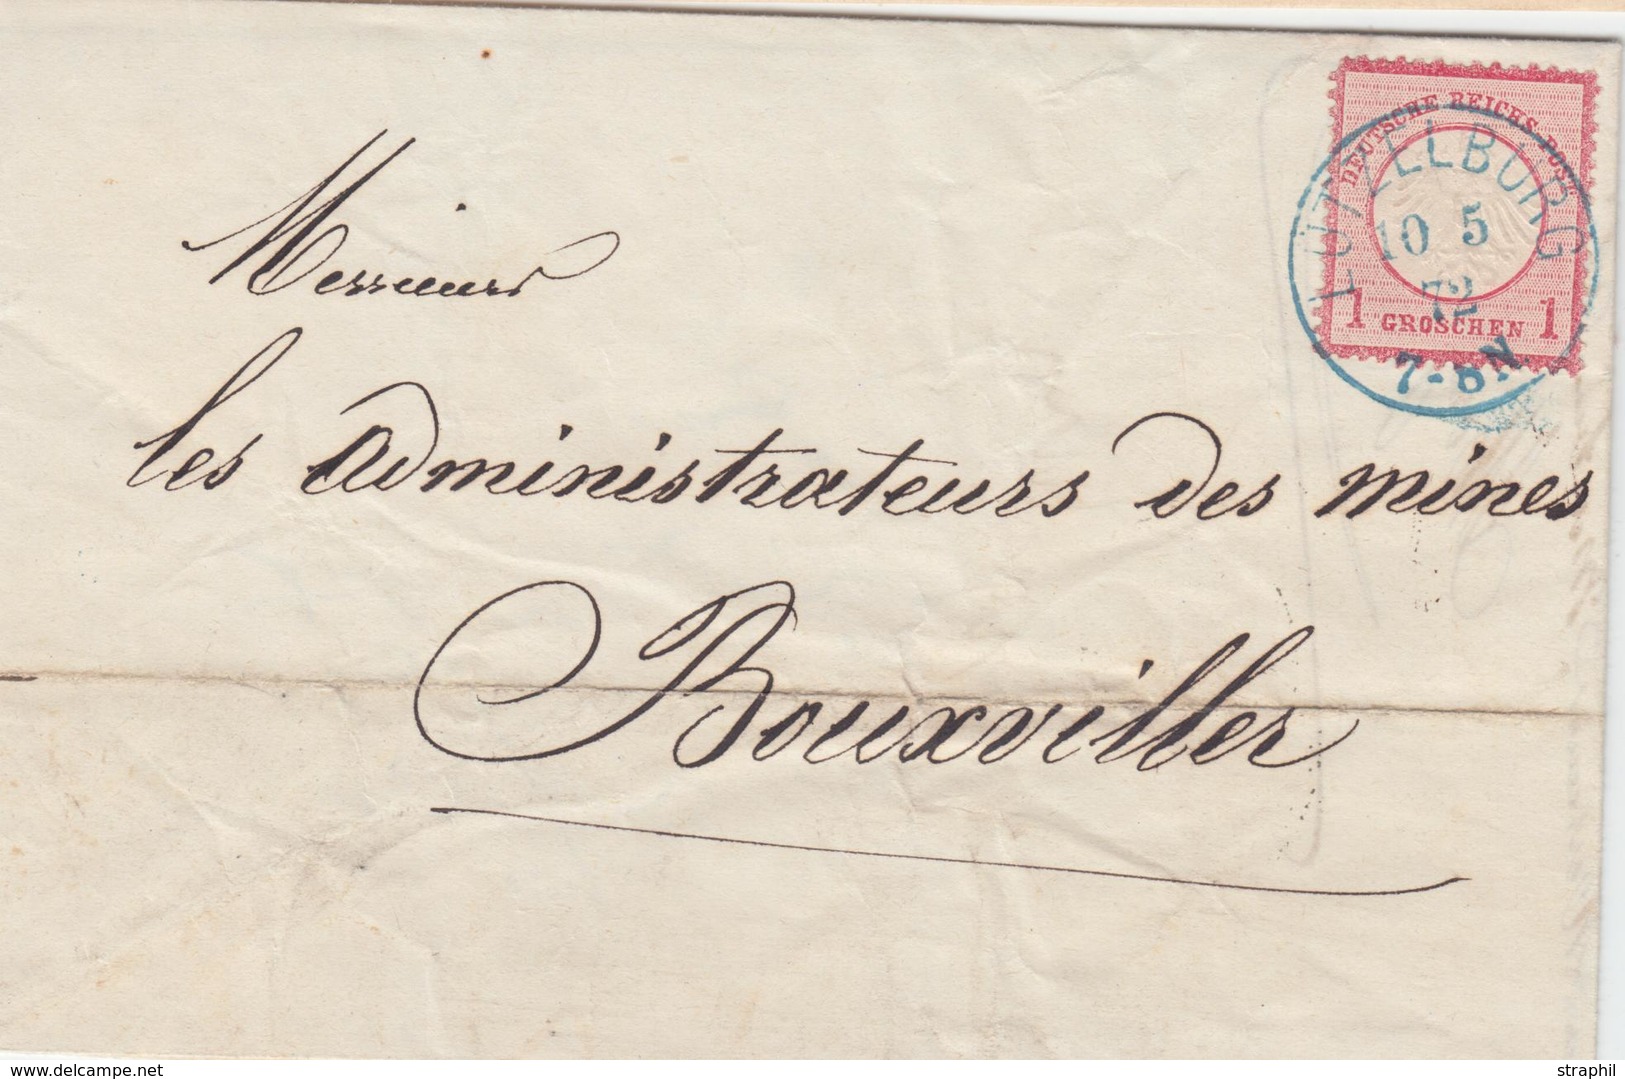 DEUTSCHE REICHS-POST
LÜTZELBURG
10 5
72
1 GROSCHEN 1
7-8N
Messieurs
les administrateurs des mines
Bouxviller
delcampe.net
straphil